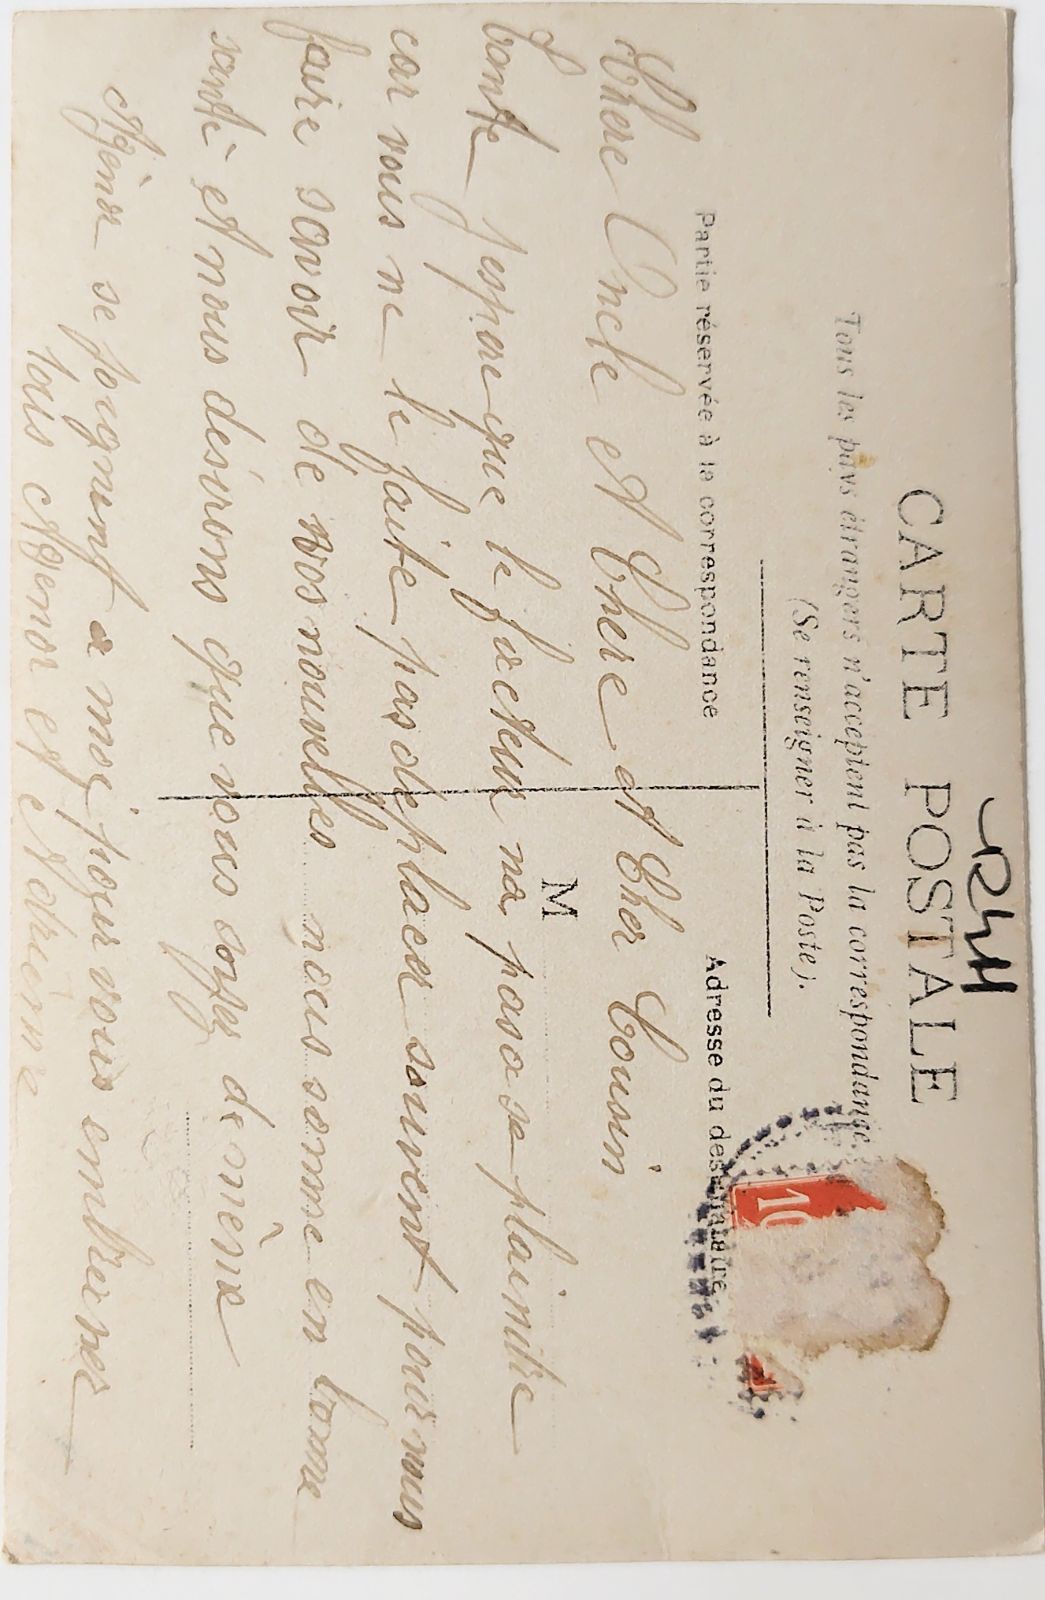 RHH
CARTE POSTALE
Tous les pays étrangers n'acceptent pas la correspondance.
(Se renseigner à la Poste).
Partie réservée à la correspondance
Adresse du destinataire
10
M
Chere Oncle et Chere et Cher Cousin
tante jespere que le facteur na pas a se plaintre
car vous ne le faite pas deplacer souvent pour nous
faire savoir de vos nouvelles nous somme en bonne
santé et nous désirons que vous soyez de même
Agénor se joigment a moi pour vous embrener
tous Agenor et